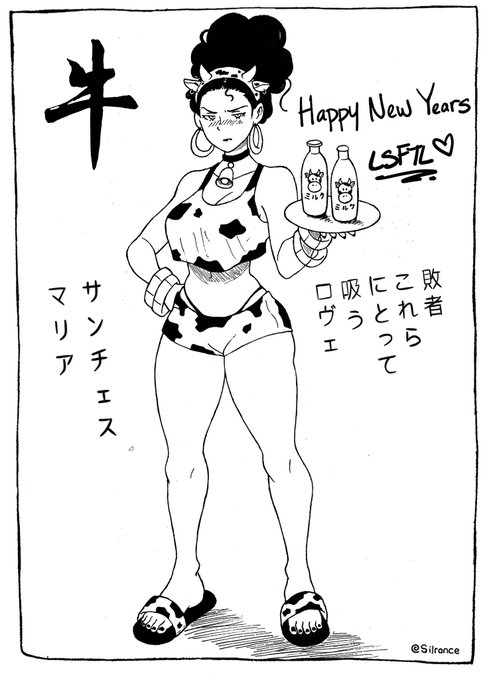 牛
Happy New Years
LSFTL♡
ミルク
ミルク
敗者
これら
にとって
吸う
ロヴェ
サンチェス
マリア
@Silrance